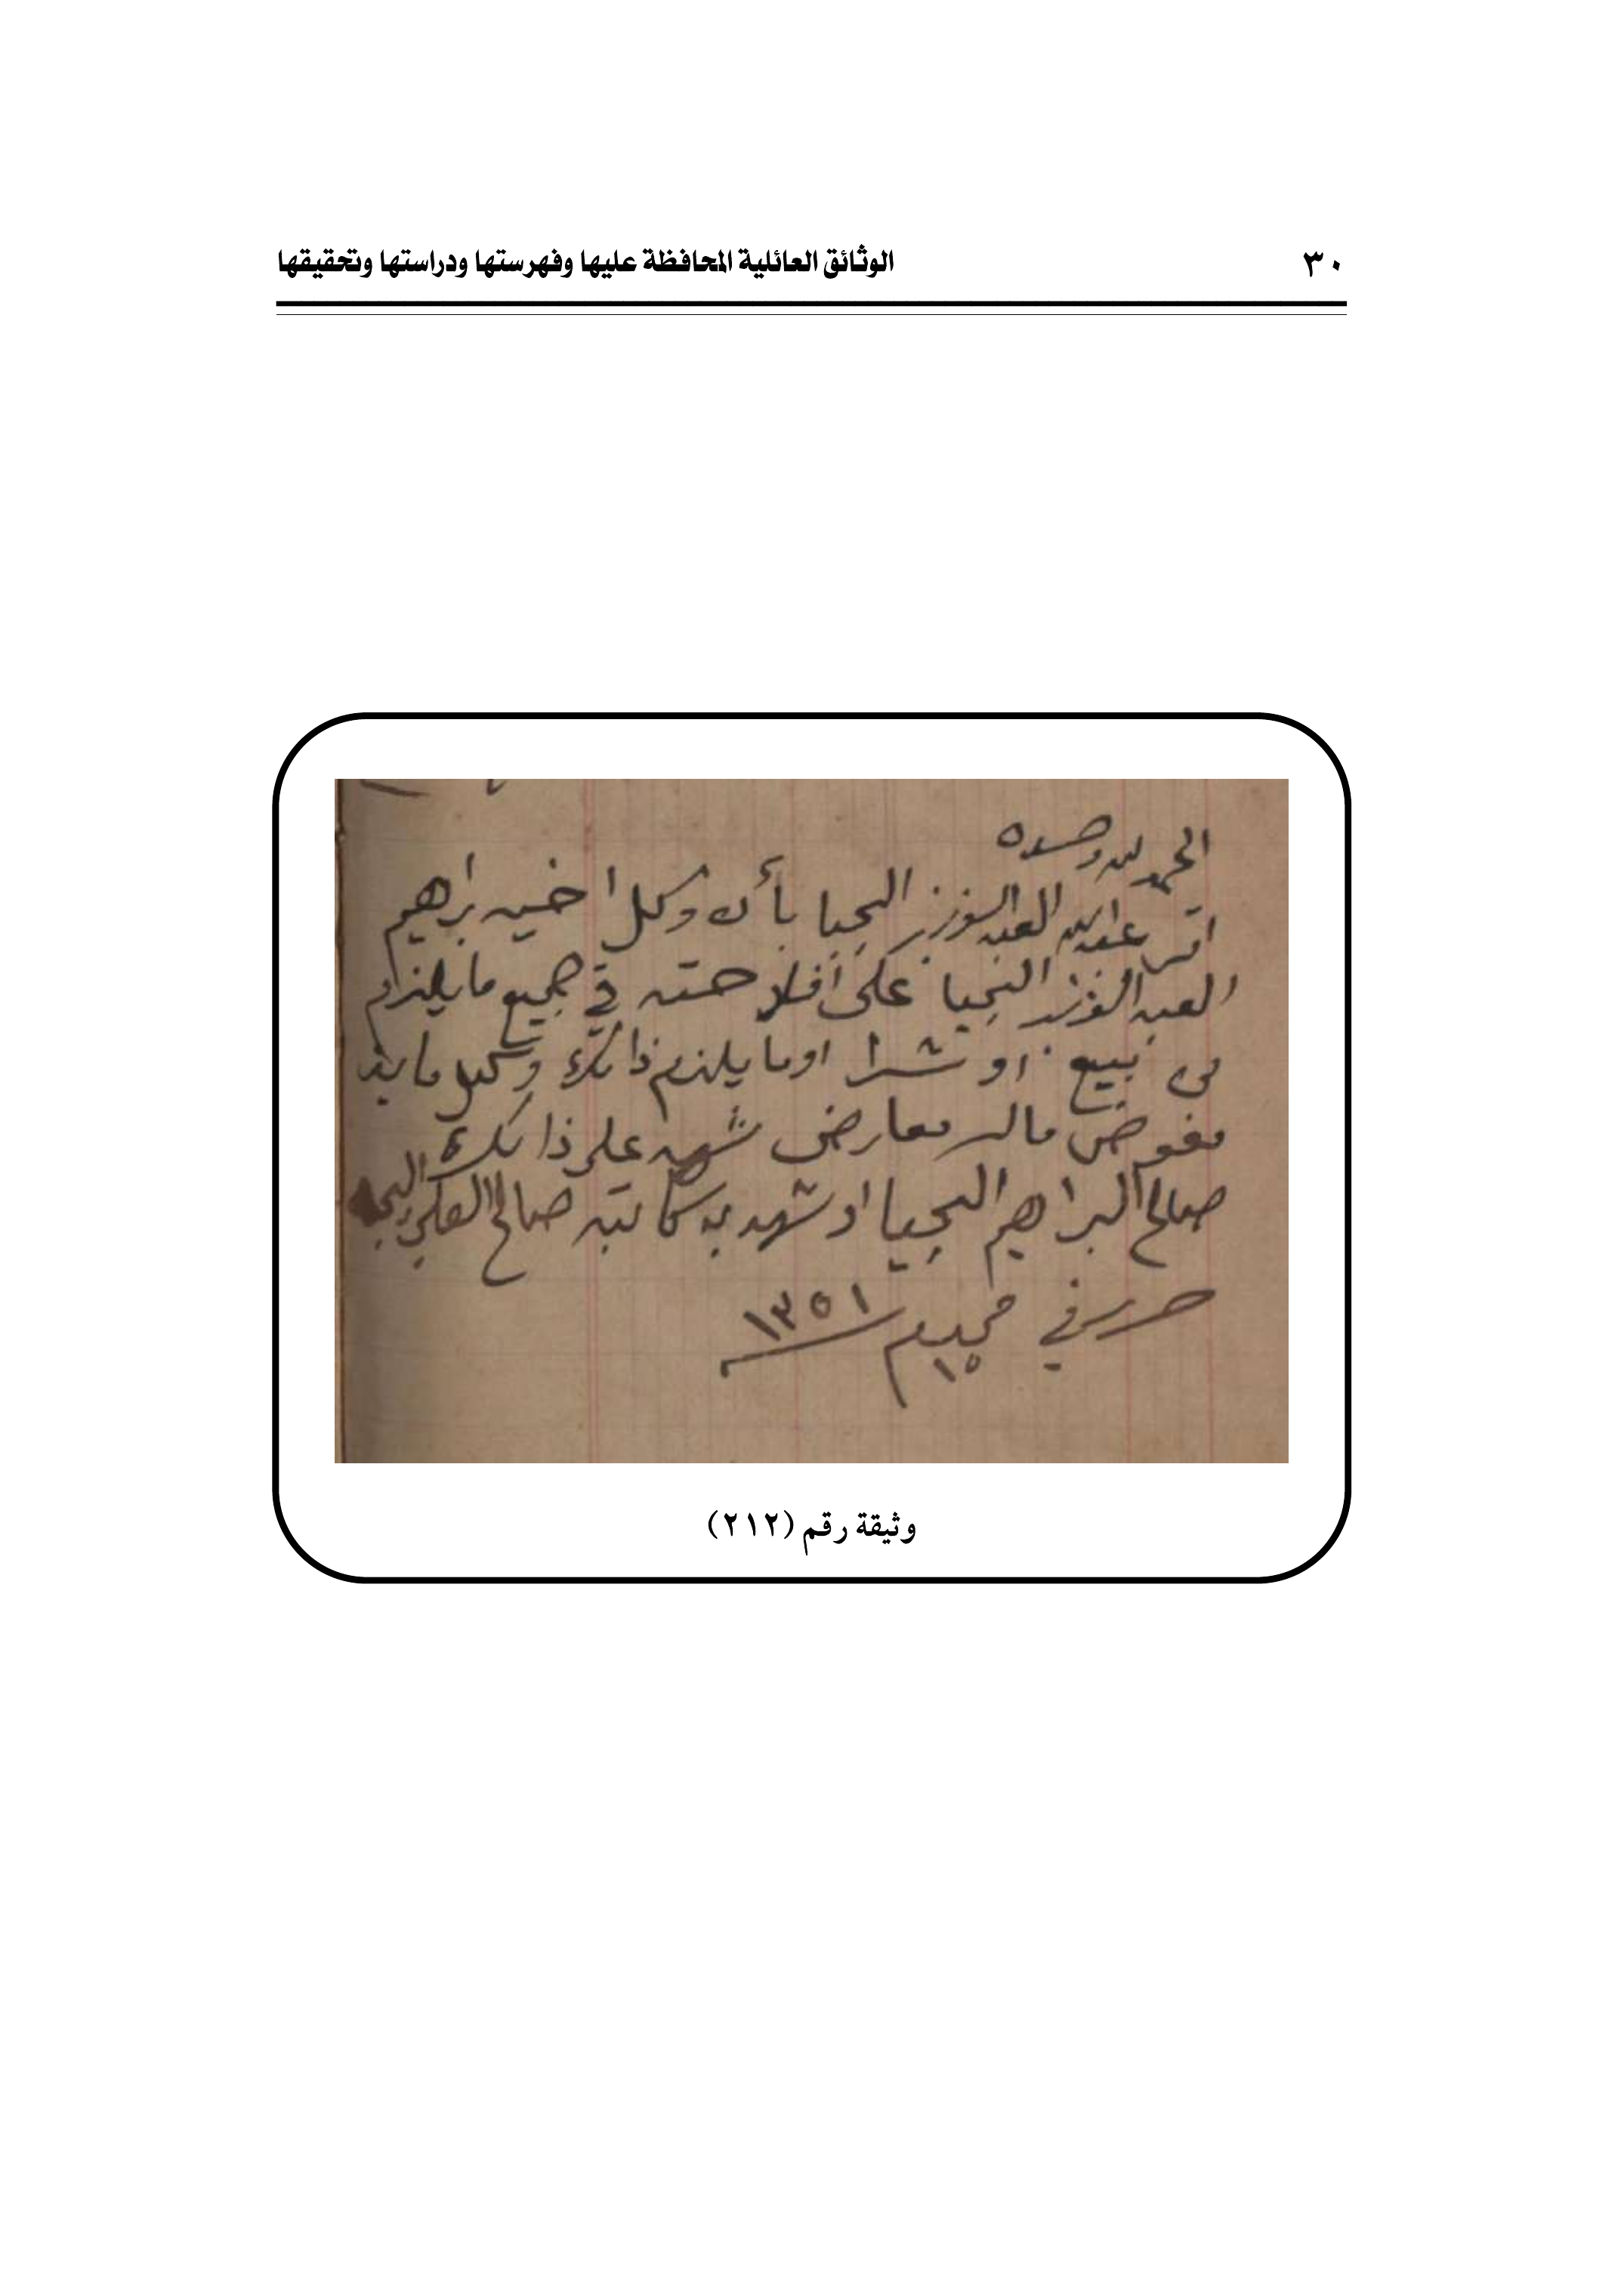 ٣٠ الوثائق العائلية المحافظة عليها وفهرستها ودراستها وتحقيقها
الحمد لله وحده
اقر عبدالله العبدالعزيز اليحيا بأن وكل اخيه براهيم
العبدالعزيز اليحيا على أفلاحته في جميع ما يلزم
من بيع او شرا او ما يلزم ذالك وكيل
مفوض ماله معارض شهد على ذالك
صالح البراهيم اليحيا او شهد به كاتبه صالح العلي اليحيا
حرر في ١٥ ١٣٥١
وثيقة رقم (٢١٢)